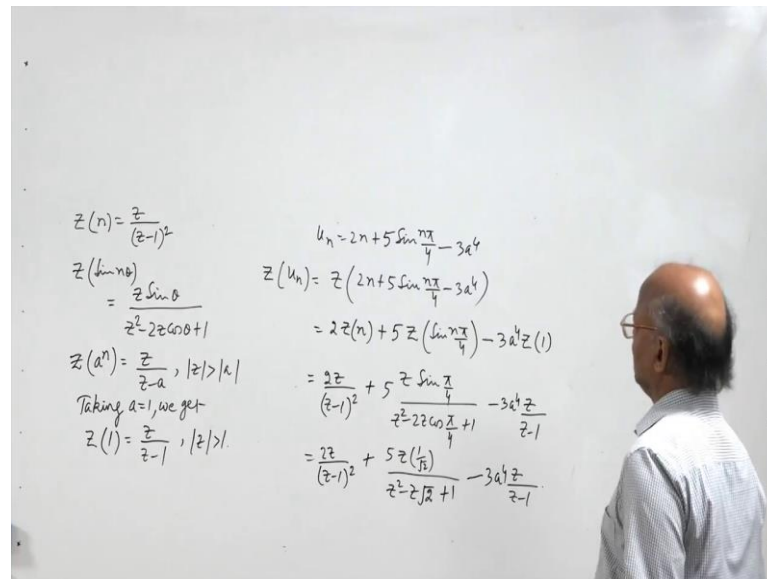 Z(n) = z/(z-1)²
Z(sin nθ)
= z sin θ/(z²-2z cos θ+1)
Z(aⁿ) = z/(z-a), |z|>|a|
Taking a=1, we get
Z(1) = z/(z-1), |z|>1.
uₙ = 2n+5 sin nπ/4 - 3a⁴
Z(uₙ) = Z(2n+5 sin nπ/4 - 3a⁴)
= 2Z(n) + 5Z(sin nπ/4) - 3a⁴Z(1)
= 2z/(z-1)² + 5 z sin π/4/(z²-2z cos π/4 +1) - 3a⁴ z/(z-1)
= 2z/(z-1)² + 5z(1/√2)/(z²-z√2+1) - 3a⁴ z/(z-1).